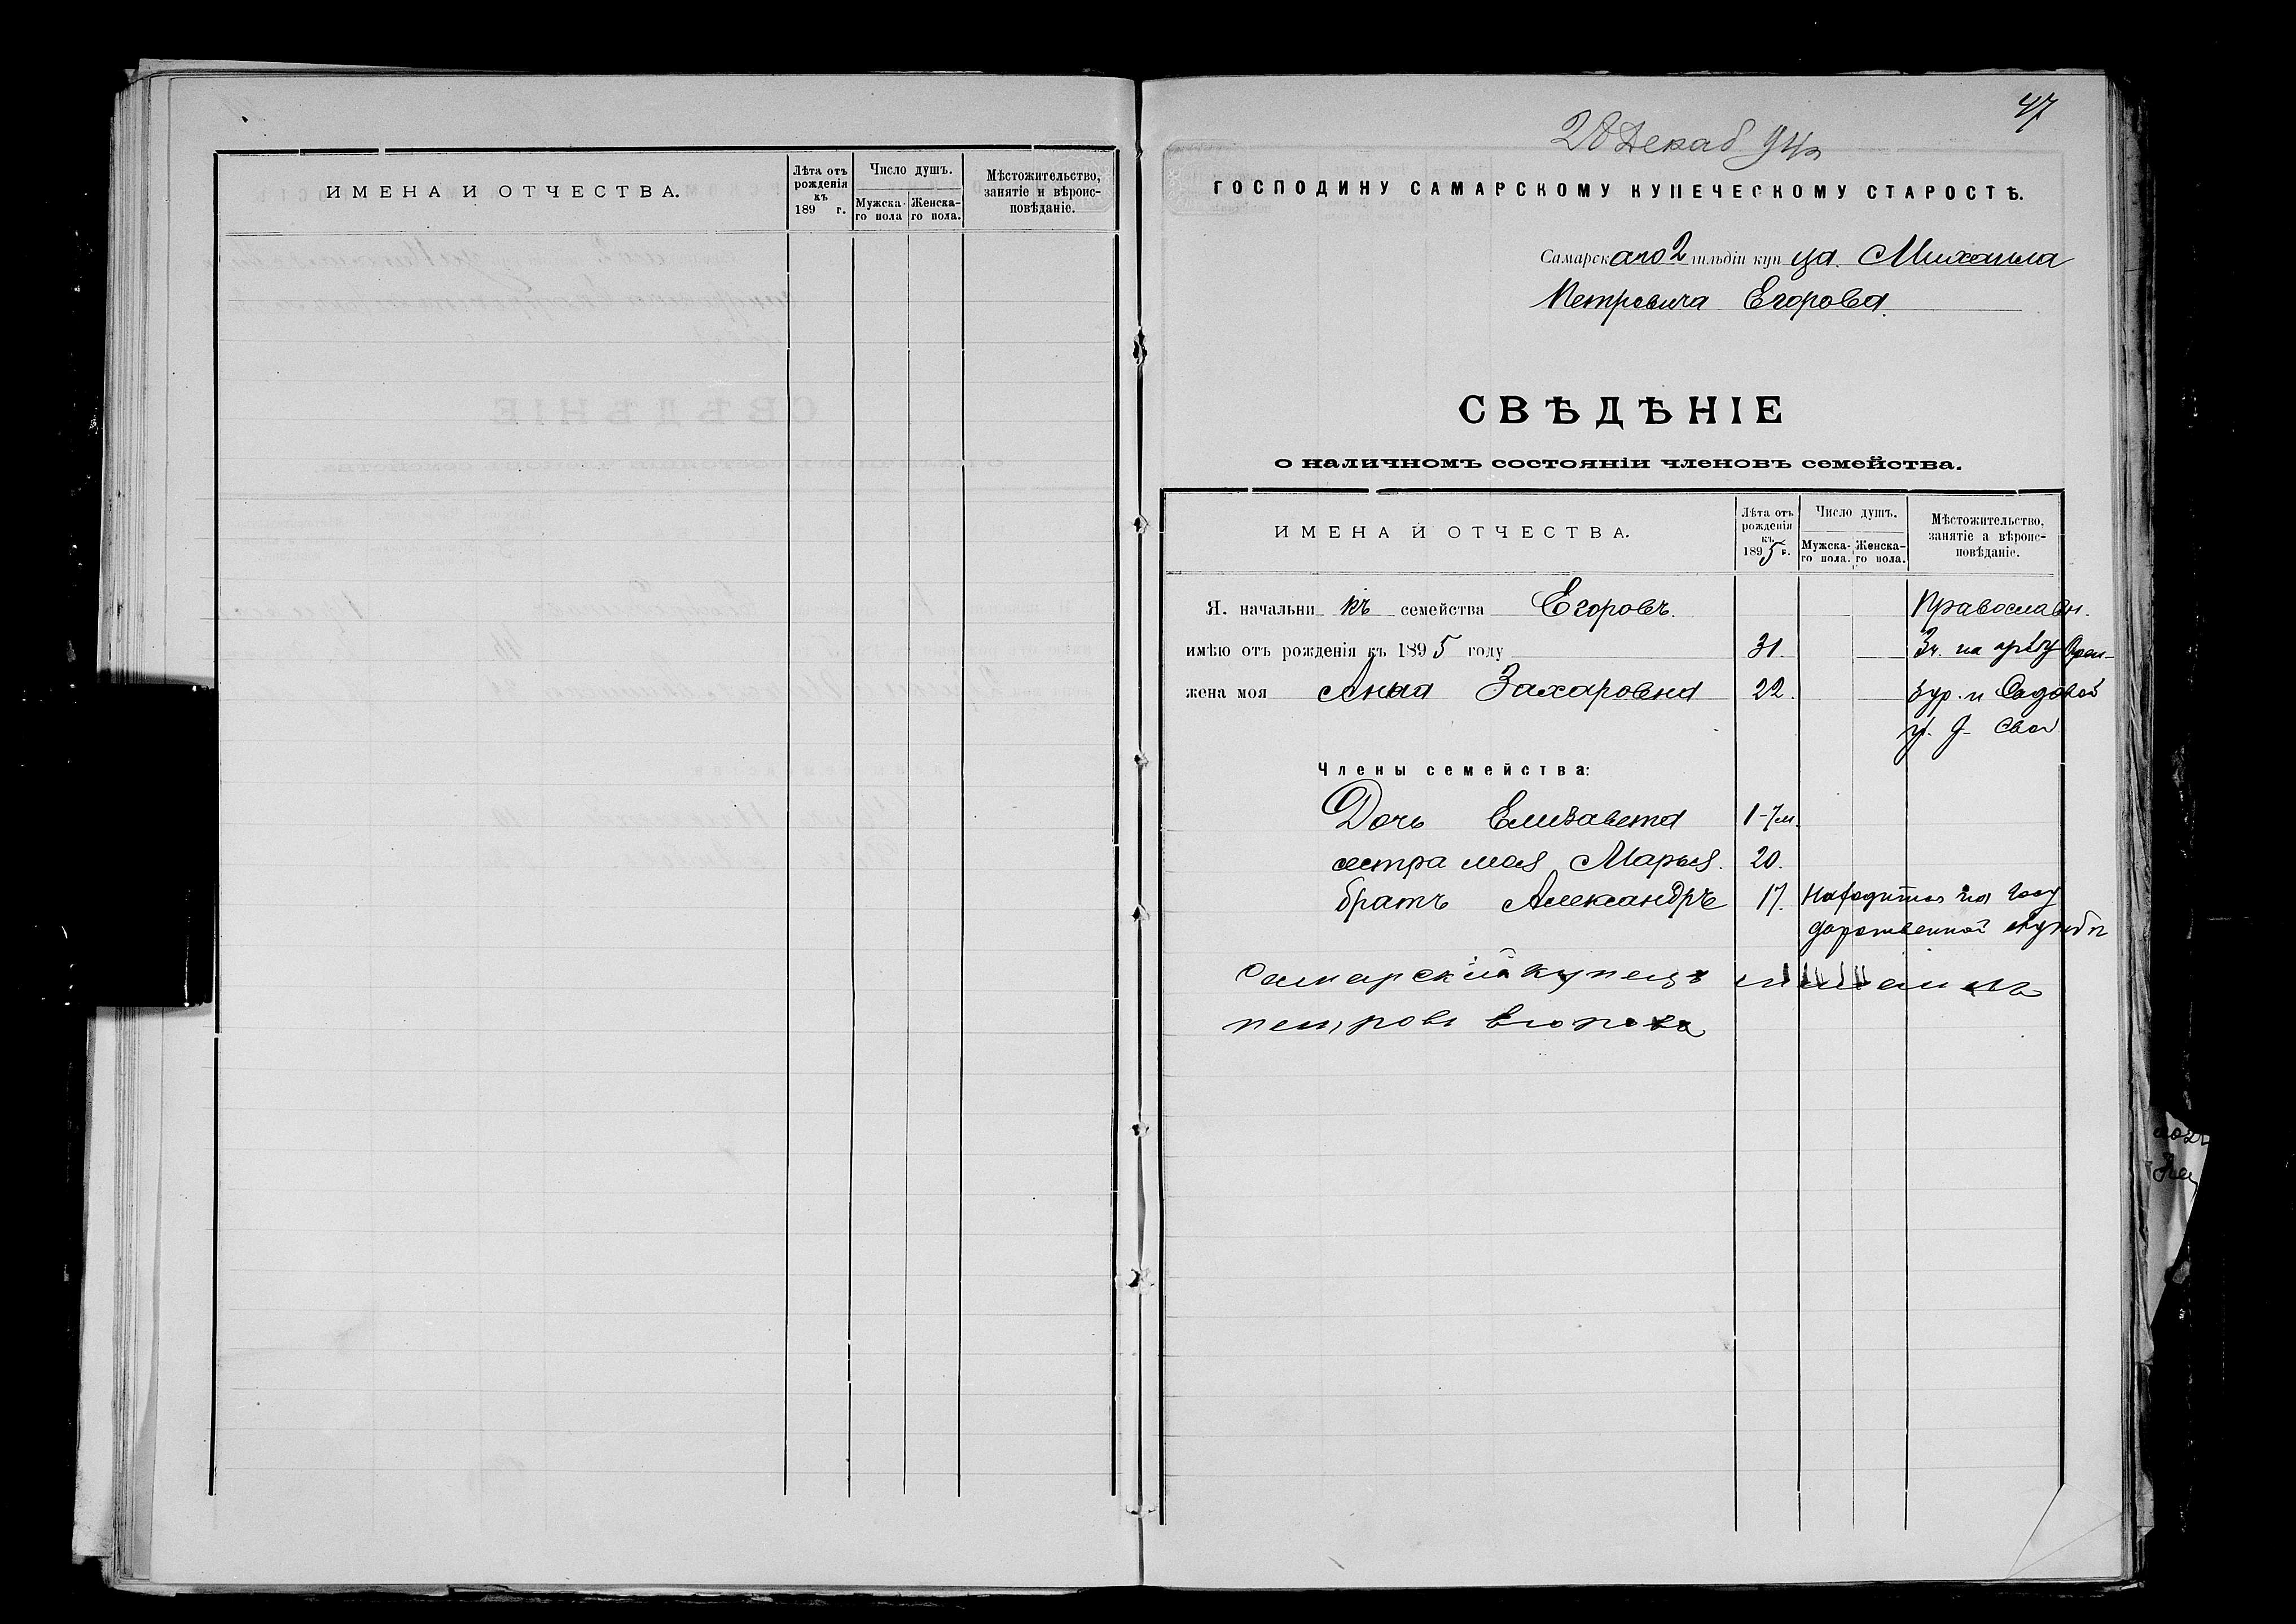 ИМЕНА И ОТЧЕСТВА.
Лѣта отъ рожденія къ 189 г.
Число душъ.
Мужска-го пола
Женска-го пола.
Мѣстожительство, занятіе и вѣроис-повѣданіе.
47
20 Декаб 94 г
ГОСПОДИНУ САМАРСКОМУ КУПЕЧЕСКОМУ СТАРОСТѢ.
Самарскаго 2 гильдіи купца Михаила
Петровича Егорова.
СВѢДѢНІЕ
о наличномъ состояніи членовъ семейства.
ИМЕНА И ОТЧЕСТВА.
Лѣта отъ рожденія къ 1895 г.
Число душъ.
Мужска-го пола.
Женска-го пола.
Мѣстожительство, занятіе а вѣроис-повѣданіе.
Я. начальникъ семейства Егоровъ. Православн.
имѣю отъ рожденія къ 1895 году 31. 3ч. на Орен-
жена моя Анна Захаровна 22. бур. и Садовой
у. д. Свой
Члены семейства:
Дочь Елизавета 1-7м.
сестра моя Марья. 20.
братъ Александръ 17. Находится на Госу
дарственной службѣ
Самарский купецъ михаила
петровъ Егорова